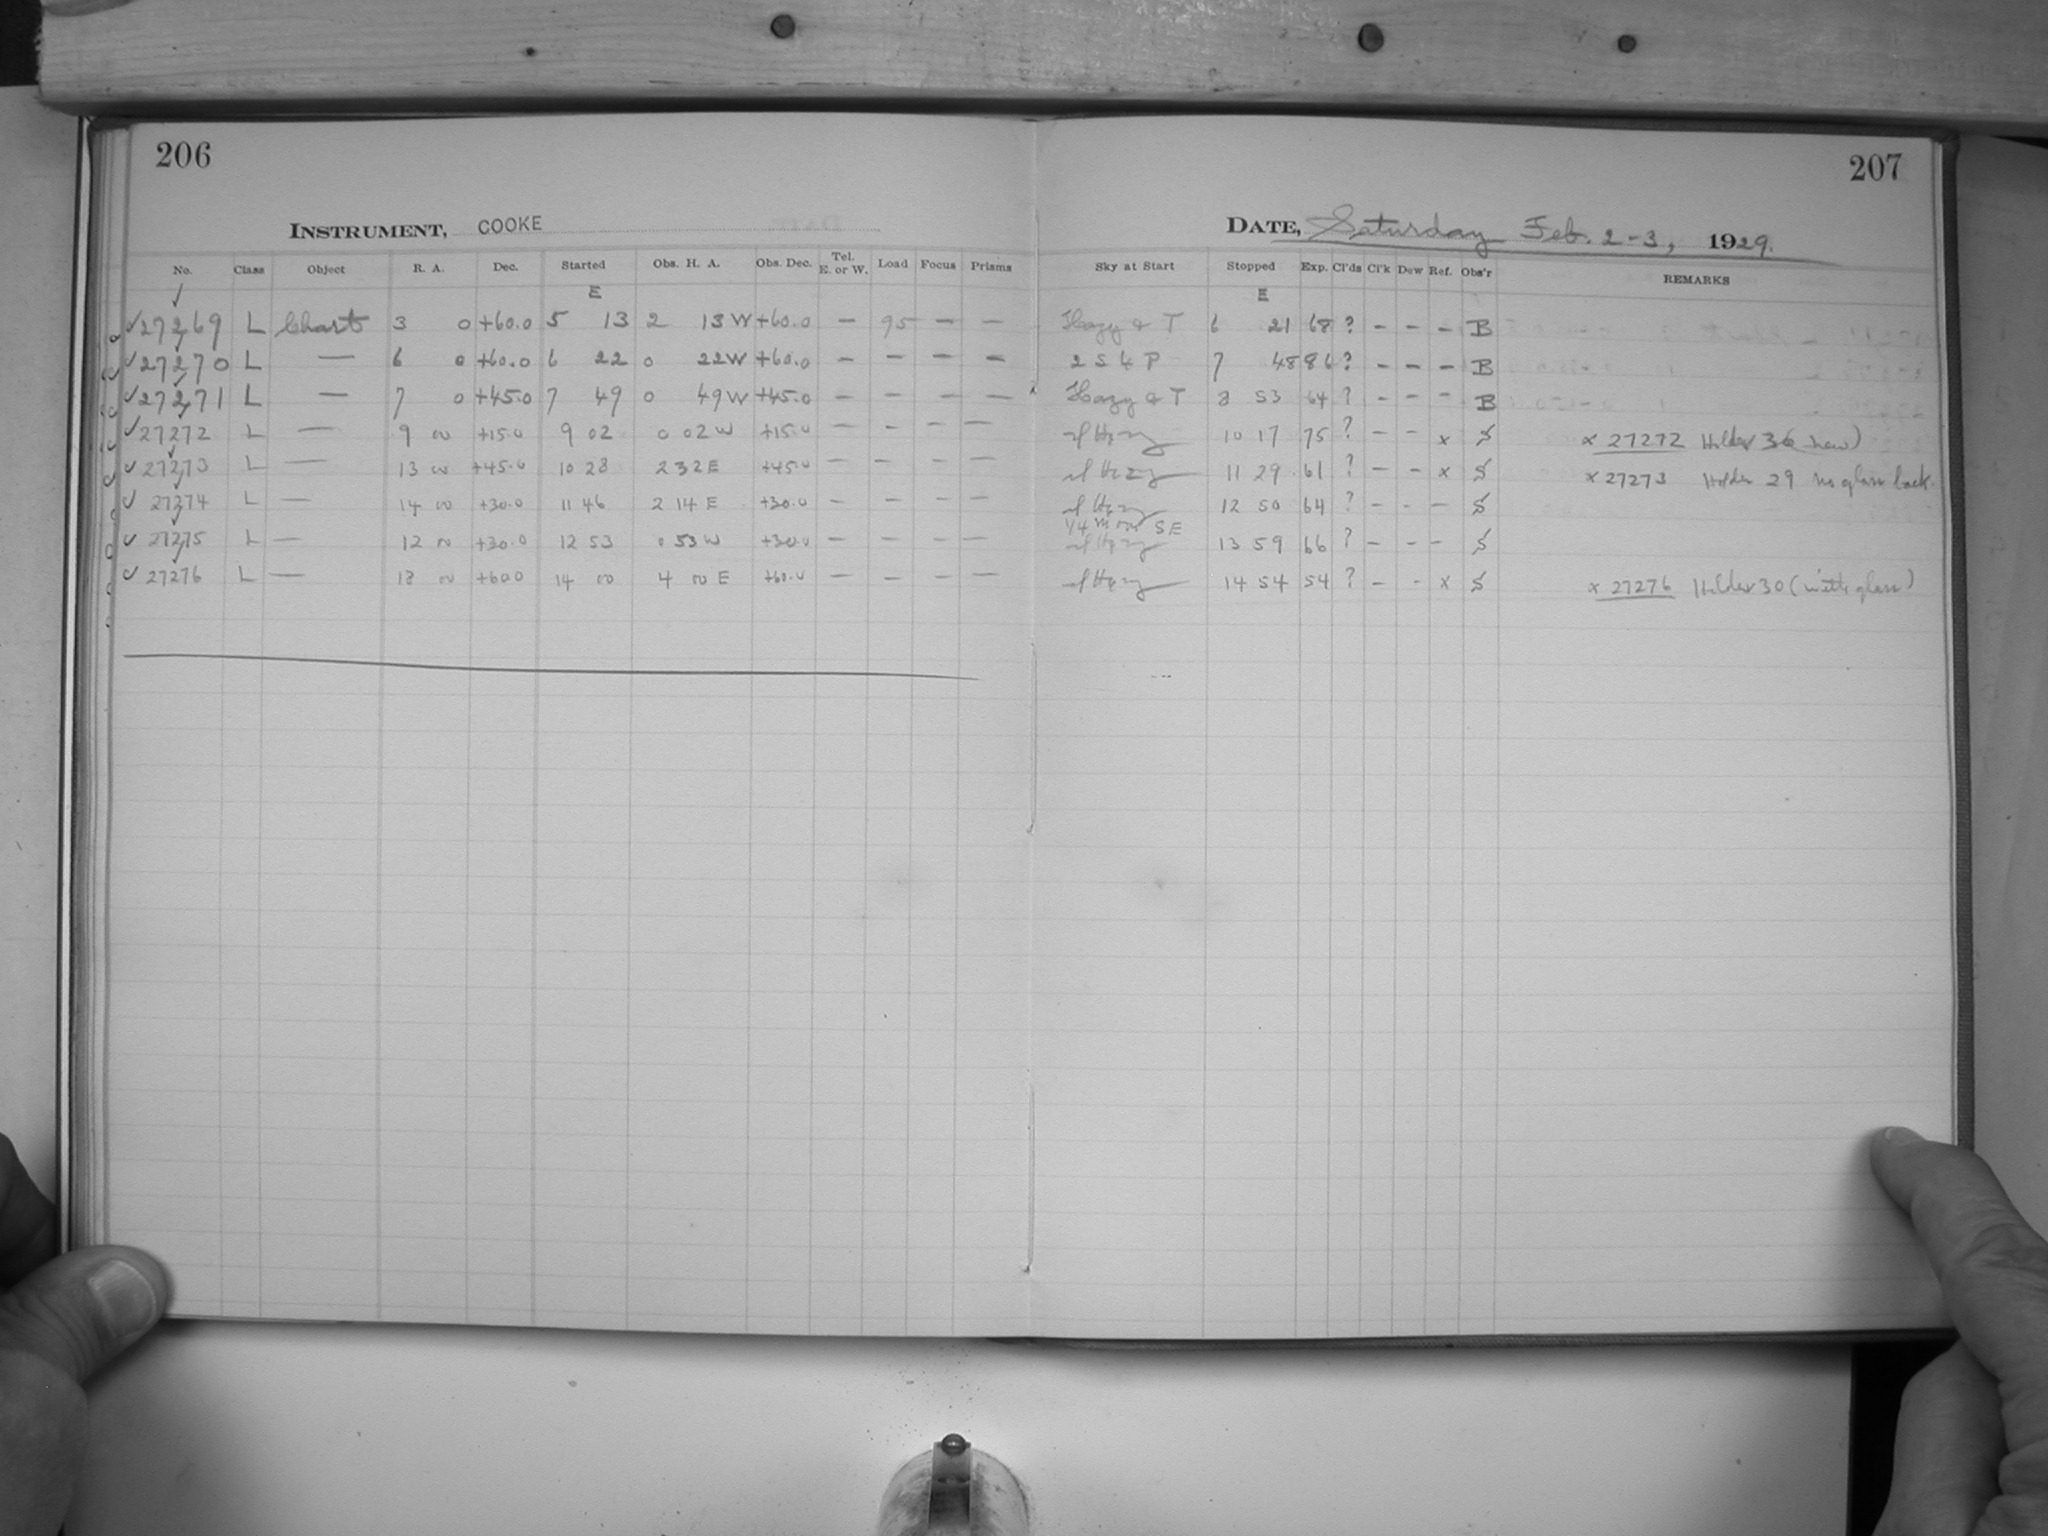 206
207
INSTRUMENT, COOKE
DATE, Saturday Feb. 2-3, 1929.
No. Class Object R. A. Dec. Started Obs. H. A. Obs. Dec. Tel. E. or W. Load Focus Prisms Sky at Start Stopped Exp. Cl'ds Cl'k Dew Ref. Obs'r REMARKS
E E
✓27269 L Chart 3 0 +60.0 5 13 2 13W +60.0 – 95 – – Hazy & T 6 21 68 ? – – – B
✓27270 L — 6 0 +60.0 6 22 0 22W +60.0 – – – – 2 S & P 7 48 86 ? – – – B
✓27271 L — 7 0 +45.0 7 49 0 49W +45.0 – – – – Hazy & T 8 53 64 ? – – – B
✓27272 L — 9 00 +15.0 9 02 0 02 W +15.0 – – – – Hazy 10 17 75 ? – – x S x 27272 Holder 36 (new)
✓27273 L — 13 00 +45.0 10 28 2 32 E +45.0 – – – – Hazy 11 29 61 ? – – x S x 27273 Holder 29 no glass back.
✓27274 L — 14 00 +30.0 11 46 2 14 E +30.0 – – – – Hazy 12 50 64 ? – – – S
1/4 moon SE
✓27275 L — 12 00 +30.0 12 53 0 53 W +30.0 – – – – Hazy 13 59 66 ? – – – S
✓27276 L — 18 00 +60.0 14 00 4 00 E +60.0 – – – – Hazy 14 54 54 ? – – x S x 27276 Holder 30 (with glass)